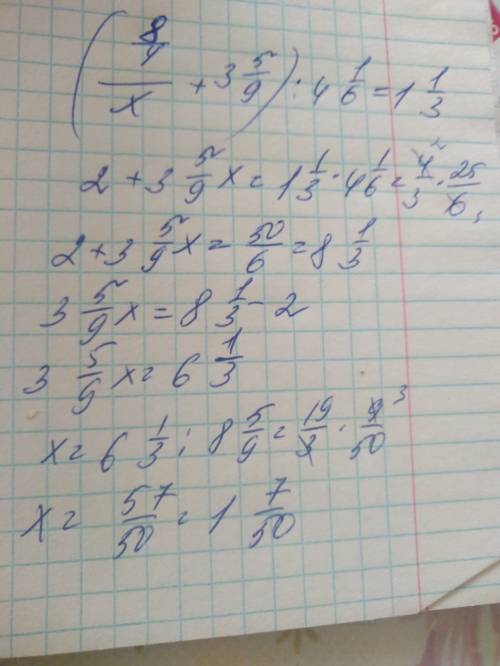 ((8/4)/x + 3 5/9) : 4 1/6 = 1 1/3
2 + 3 5/9 x = 1 1/3 · 4 1/6 = 4/3 · 25/6
2 + 3 5/9 x = 50/6 = 8 1/3
3 5/9 x = 8 1/3 - 2
3 5/9 x = 6 1/3
x = 6 1/3 : 8 5/9 = 19/3 · 9/50 3
x = 57/50 = 1 7/50